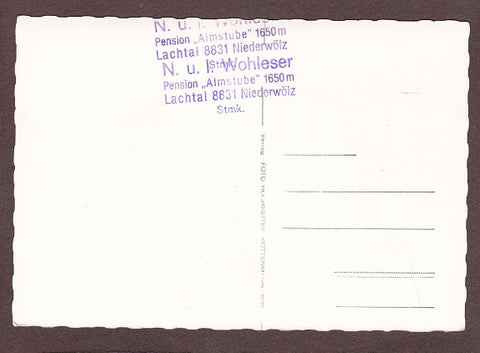 N. u. I. Wohleser
Pension „Almstube" 1650 m
Lachtal 8831 Niederwölz
Stmk.
N. u. I. Wohleser
Pension „Almstube" 1650 m
Lachtal 8831 Niederwölz
Stmk.
Verlag FOTO